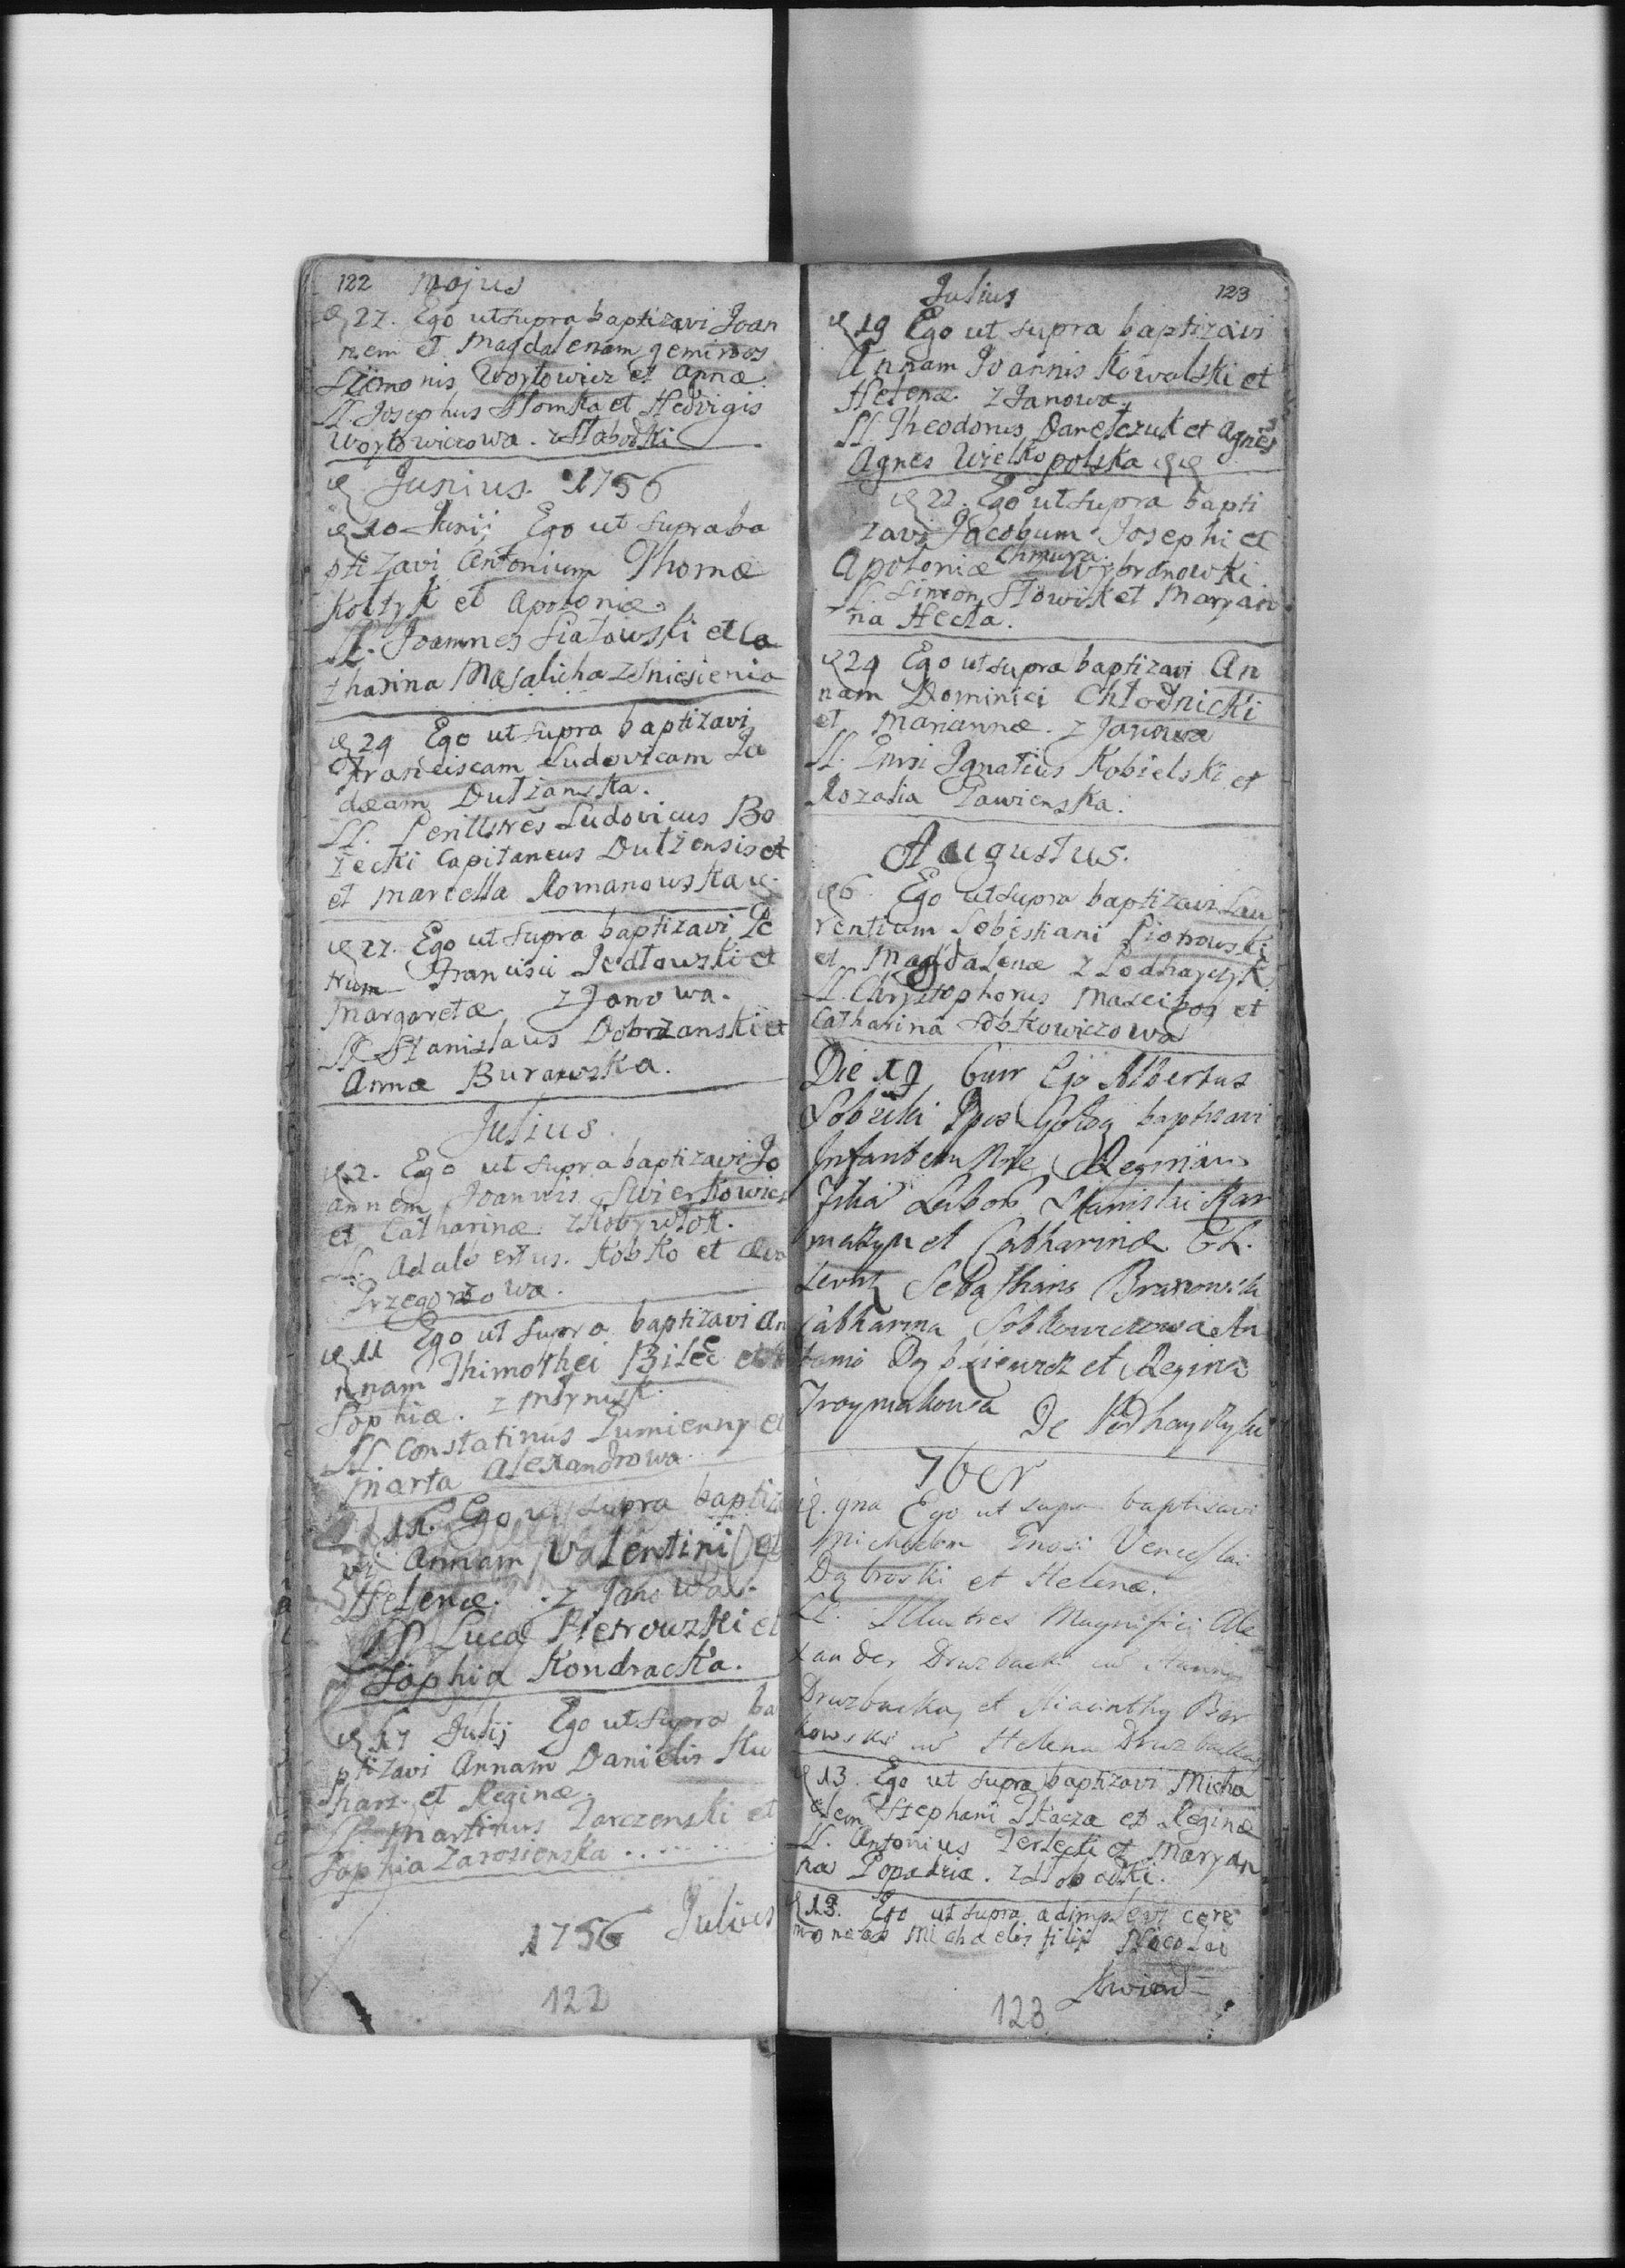 122 Majus
27. Ego ut supra baptizavi Joan
nem et Magdalenam geminos
Szimonis Woytowicz et Annæ
LL. Josephus Slomka et Hedvigis
Woytowiczowa. z Słabodki
Junius. 1756
10 Junij Ego ut supra ba
ptizavi Antonium Thomæ
Kołtyk et Apoloniæ
LL. Joannes Siatowski et Ca
tharina z Zniesienia
24 Ego ut supra baptizavi
Franciscam Ludovicam Ju
dæam Dulżanska.
LL. Perillstres Ludovicus Bo
recki Capitaneus Dulżensis et
et Marcella Romanowska
27. Ego ut supra baptizavi Pe
trum Francisci Jedłowski et
Margaretæ z Janowa.
LL Stanislaus Dobrzanski et
Anna Burawska.
Julius.
2. Ego ut supra baptizavi Jo
annem Joannis Swierkowicz
et Catharinæ z Kobywłok.
LL. Adalbertus. Kobko et Eva
Grzegorzowa.
11 Ego ut supra baptizavi An
nam Thimothei Bileć et
Sophiæ. z Młynisk.
LL Constatinus Tumienny et
Marta Alexandrowa.
11. Ego ut supra baptiza
vi Annam Valentini et
Helenæ. z Janowa.
PP Luca Pietrowski et
Sophia Kondracka.
17 Julij Ego ut supra ba
ptizavi Annam Danielis Ku
harz. et Reginæ.
LL. Martinus Tarczenski et
Sophia Zarosienska.....
1756 Julius
122
Julius 123
19 Ego ut supra baptizavi
Annam Joannis Kowalski et
Helenæ z Janowa.
LL. Theodorus Daretczuk et Agnes
Agnes Wielkopolska
22. Ego ut supra bapti
zavi Jacobum Josephi et
Chmura.
Apoloniæ z Wybranowki
LL. Simeon Słowik et Maryan
na Hecla.
24 Ego ut supra baptizavi An
nam Dominici Chłodnicki
et Mariannæ. z Janowa
LL. Gnrsi Ignatius Kobielski et
Rozalia Pawienska.
Augustus.
6 Ego ut supra baptizavi Lau
rentium Sebestiani Piotrowski
et Magdalenæ z Podhayczyk
LL. Chrystophorus Maleibog et
Catharina Sobkowiczowa
Die 19 Ego Albertus
Sobecki baptisavi
Infantem Nne Reginam
Filia Labor Stanislai Kar
et Catharinæ CL.
Levnt Sebasthianis Branowski
Catharina Sobkowiczowa An
toni et Regina
De Podhayczyki
7ber
9na Ego ut supra baptisavi
Michaelem Gnosi Venceslai
Dąbroski et Helenæ.
LL. Illustres Magnifici Ale
xander Druzbacki Anna
Druzbacka, et Hiacinthy Bar
kowski Helena Druzbacka
13. Ego ut supra baptizavi Micha
elem Stephani Tkacza et Reginæ
LL. Antonius Terlecki et Maryan
na Popadzia. z Słobodki.
13. Ego ut supra adimplevi cere
moneas Michaelis filij Nicolai
Kwiend
123